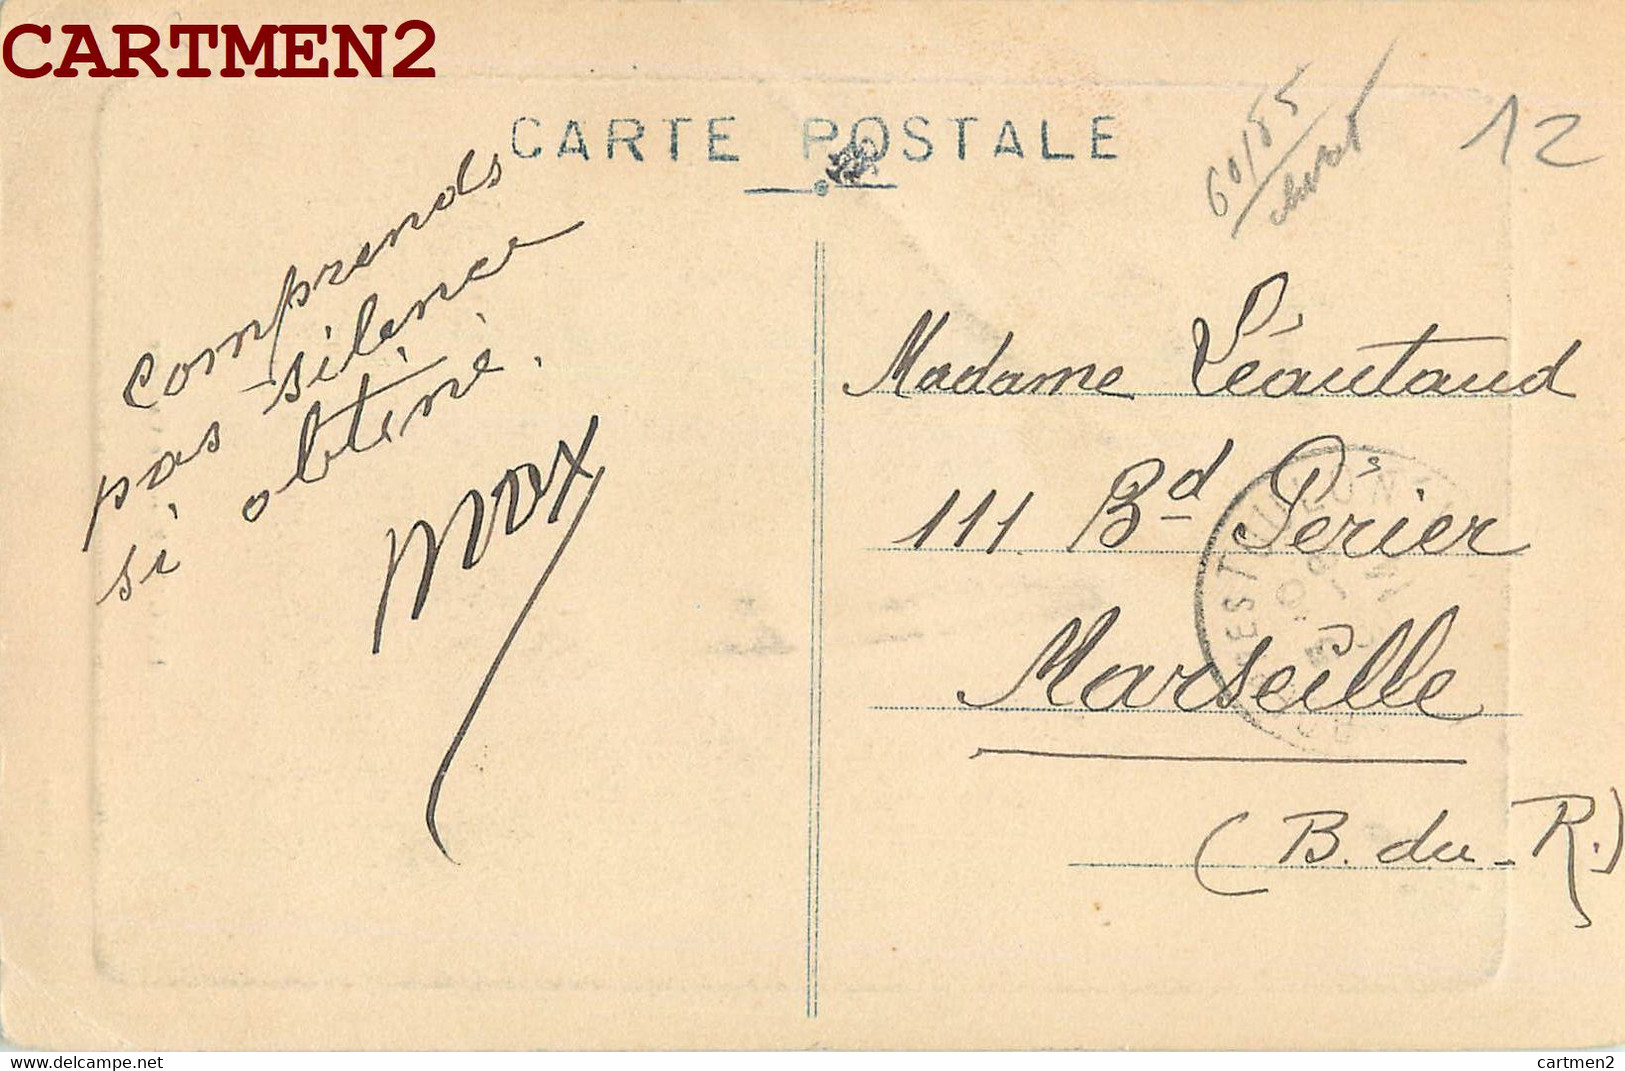 CARTMEN2
CARTE POSTALE
60/85
12
comprends
pas silence
si obtiné.
Max
Madame Léautaud
111 Bd Périer
Marseille
(B. du R.)
cartmen2
www.delcampe.net